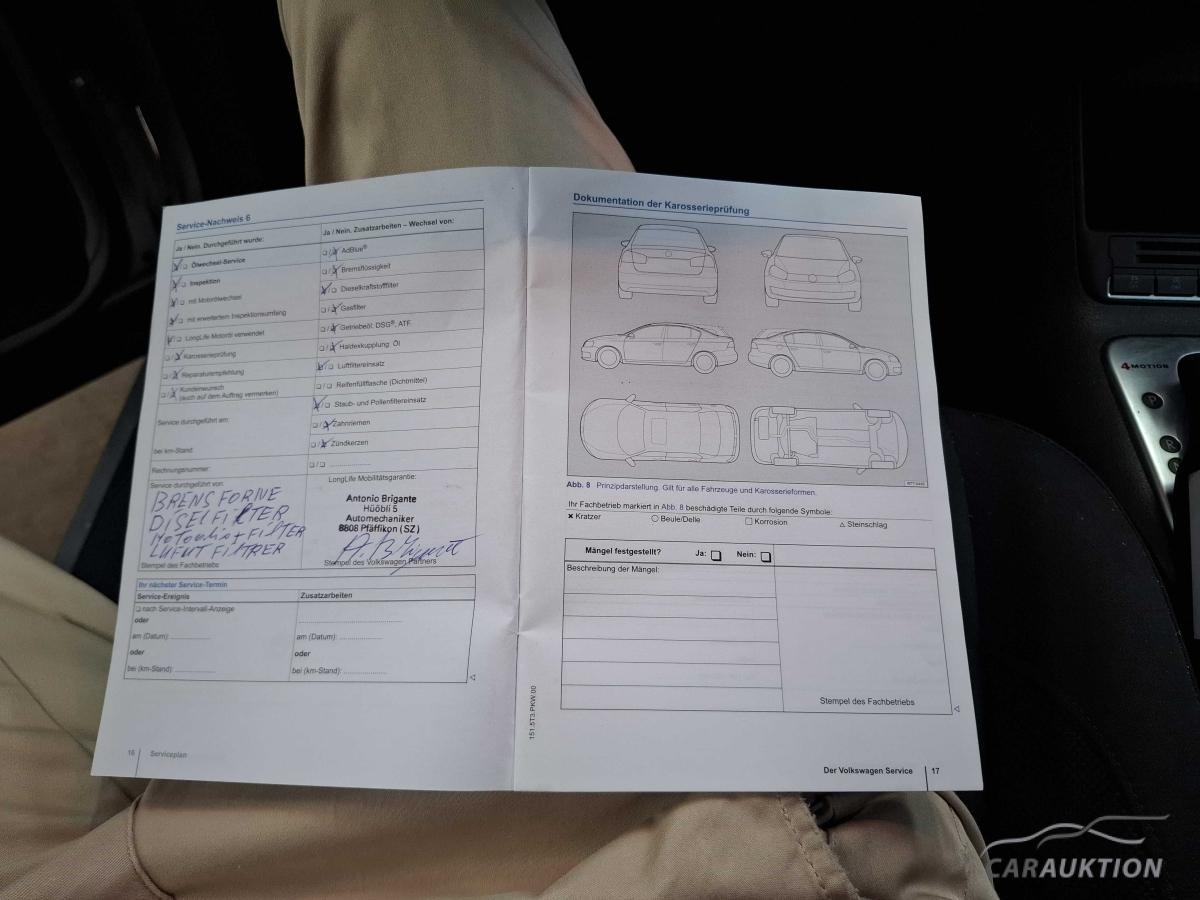 Service-Nachweis 6
Ja / Nein. Durchgeführt wurde:
Ölwechsel-Service
Inspektion
mit Motorölwechsel
mit erweitertem Inspektionsumfang
LongLife Motoröl verwendet
Karosserieprüfung
Reparaturempfehlung
Kundenwunsch
(auch auf dem Auftrag vermerken)
Service durchgeführt am:
bei km-Stand:
Rechnungsnummer:
Service durchgeführt von:
BRENSFORNE
DISELFILTER
+ FILTER
LUFUT FILTRER
Stempel des Fachbetriebs
Ja / Nein. Zusatzarbeiten – Wechsel von:
AdBlue®
Bremsflüssigkeit
Dieselkraftstofffilter
Gasfilter
Getriebeöl: DSG®, ATF
Haldexkupplung: Öl
Luftfiltereinsatz
Reifenfüllflasche (Dichtmittel)
Staub- und Pollenfiltereinsatz
Zahnriemen
Zündkerzen
LongLife Mobilitätsgarantie:
Antonio Brigante
Hüöbli 5
Automechaniker
8808 Pfäffikon (SZ)
Stempel des Volkswagen Partners
Ihr nächster Service-Termin
Service-Ereignis
Zusatzarbeiten
nach Service-Intervall-Anzeige
oder
am (Datum): ....................
oder
bei (km-Stand): ....................
am (Datum): ....................
oder
bei (km-Stand): ....................
16 Serviceplan
Dokumentation der Karosserieprüfung
Abb. 8 Prinzipdarstellung. Gilt für alle Fahrzeuge und Karosserieformen.
Ihr Fachbetrieb markiert in Abb. 8 beschädigte Teile durch folgende Symbole:
× Kratzer ○ Beule/Delle □ Korrosion △ Steinschlag
Mängel festgestellt? Ja: Nein:
Beschreibung der Mängel:
Stempel des Fachbetriebs
151.5T3.PKW.00
Der Volkswagen Service 17
4MOTION
P
R
CARAUKTION